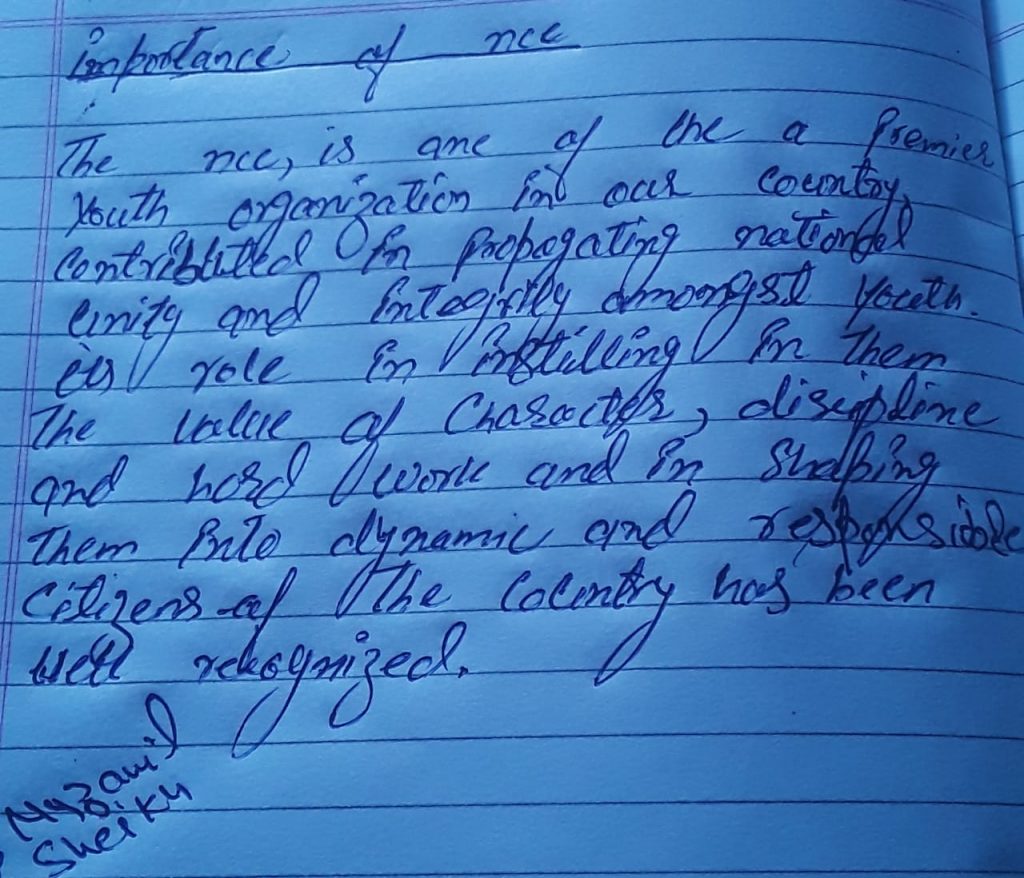 importance of ncc
The ncc, is one of the a Premier
Youth organization in our country,
Contributted in propogating national
unity and integirtly amongst youth.
its role in instilling in them
The value of Character, discipline
and hord work and in Shaping
them into dynamic and responsidble
Citizens of the Country has been
well rekognized.
Muzamil
Sheikh